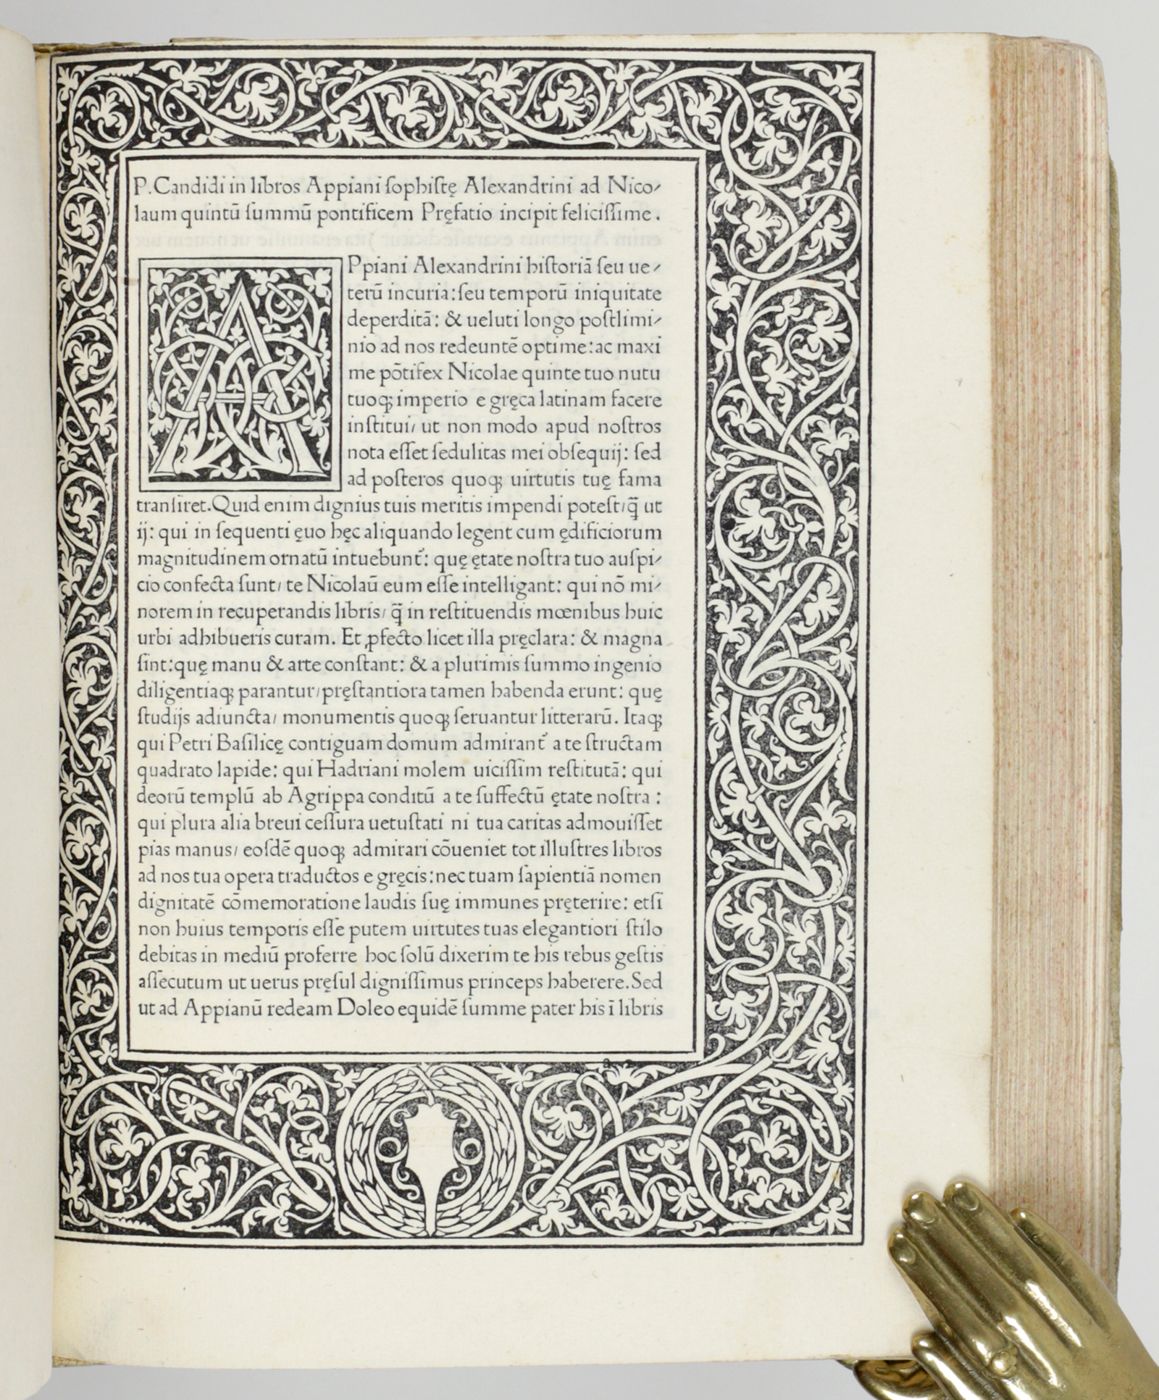 P.Candidi in libros Appiani sophistę Alexandrini ad Nico⸗
laum quintū summū pontificem Pręfatio incipit felicissime.
APpiani Alexandrini historiā seu ue⸗
terū incuria:seu temporū iniquitate
deperditā: & ueluti longo postlimi⸗
nio ad nos redeuntē optime:ac maxi
me pōtifex Nicolae quinte tuo nutu
tuoqꝫ imperio e gręca latinam facere
institui/ ut non modo apud nostros
nota esset sedulitas mei obsequij: sed
ad posteros quoqꝫ uirtutis tuę fama
transiret.Quid enim dignius tuis meritis impendi potest/q̄ ut
ij: qui in sequenti ęuo hęc aliquando legent cum ędificiorum
magnitudinem ornatū intuebunt᷑: quę ętate nostra tuo auspi⸗
cio confecta sunt/ te Nicolaū eum esse intelligant: qui nō mi⸗
norem in recuperandis libris/ q̄ in restituendis mœnibus huic
urbi adhibueris curam. Et ꝓfecto licet illa pręclara: & magna
sint:quę manu & arte constant: & a plurimis summo ingenio
diligentiaqꝫ parantur/pręstantiora tamen habenda erunt: quę
studijs adiuncta/ monumentis quoqꝫ seruantur litterarū. Itaqꝫ
qui Petri Basilicę contiguam domum admirant᷑ a te structam
quadrato lapide: qui Hadriani molem uicissim restitutā: qui
deorū templū ab Agrippa conditū a te suffectū ętate nostra :
qui plura alia breui cessura uetustati ni tua caritas admouisset
pias manus/ eosdē quoqꝫ admirari cōueniet tot illustres libros
ad nos tua opera traductos e gręcis:nec tuam sapientiā nomen
dignitatē cōmemoratione laudis suę immunes pręterire: etsi
non huius temporis esse putem uirtutes tuas elegantiori stilo
debitas in mediū proferre hoc solū dixerim te his rebus gestis
assecutum ut uerus pręsul dignissimus princeps haberere.Sed
ut ad Appianū redeam Doleo equidē summe pater his ī libris